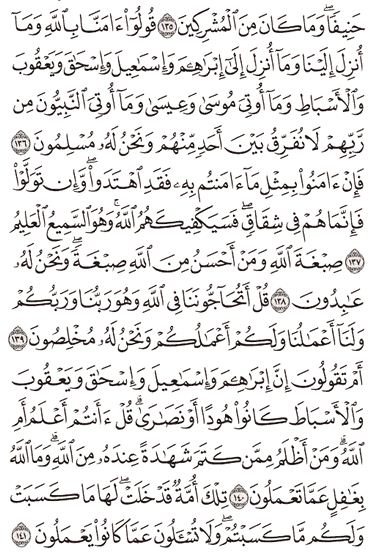 حَنِيفًا ۖ وَمَا كَانَ مِنَ الْمُشْرِكِينَ ١٣٥ قُولُوٓا۟ ءَامَنَّا بِاللَّهِ وَمَآ
أُنزِلَ إِلَيْنَا وَمَآ أُنزِلَ إِلَىٰٓ إِبْرَٰهِۦمَ وَإِسْمَٰعِيلَ وَإِسْحَٰقَ وَيَعْقُوبَ
وَالْأَسْبَاطِ وَمَآ أُوتِىَ مُوسَىٰ وَعِيسَىٰ وَمَآ أُوتِىَ النَّبِيُّونَ مِن
رَّبِّهِمْ لَا نُفَرِّقُ بَيْنَ أَحَدٍ مِّنْهُمْ وَنَحْنُ لَهُۥ مُسْلِمُونَ ١٣٦
فَإِنْ ءَامَنُوا۟ بِمِثْلِ مَآ ءَامَنتُم بِهِۦ فَقَدِ اهْتَدَوا۟ ۖ وَّإِن تَوَلَّوْا۟
فَإِنَّمَا هُمْ فِى شِقَاقٍ ۖ فَسَيَكْفِيكَهُمُ اللَّهُ ۚ وَهُوَ السَّمِيعُ الْعَلِيمُ
١٣٧ صِبْغَةَ اللَّهِ ۖ وَمَنْ أَحْسَنُ مِنَ اللَّهِ صِبْغَةً ۖ وَنَحْنُ لَهُۥ
عَٰبِدُونَ ١٣٨ قُلْ أَتُحَآجُّونَنَا فِى اللَّهِ وَهُوَ رَبُّنَا وَرَبُّكُمْ
وَلَنَآ أَعْمَٰلُنَا وَلَكُمْ أَعْمَٰلُكُمْ وَنَحْنُ لَهُۥ مُخْلِصُونَ ١٣٩
أَمْ تَقُولُونَ إِنَّ إِبْرَٰهِۦمَ وَإِسْمَٰعِيلَ وَإِسْحَٰقَ وَيَعْقُوبَ
وَالْأَسْبَاطَ كَانُوا۟ هُودًا أَوْ نَصَٰرَىٰ ۗ قُلْ ءَأَنتُمْ أَعْلَمُ أَمِ
اللَّهُ ۗ وَمَنْ أَظْلَمُ مِمَّن كَتَمَ شَهَٰدَةً عِندَهُۥ مِنَ اللَّهِ ۗ وَمَا اللَّهُ
بِغَٰفِلٍ عَمَّا تَعْمَلُونَ ١٤٠ تِلْكَ أُمَّةٌ قَدْ خَلَتْ ۖ لَهَا مَا كَسَبَتْ
وَلَكُم مَّا كَسَبْتُمْ ۖ وَلَا تُسْـَٔلُونَ عَمَّا كَانُوا۟ يَعْمَلُونَ ١٤١